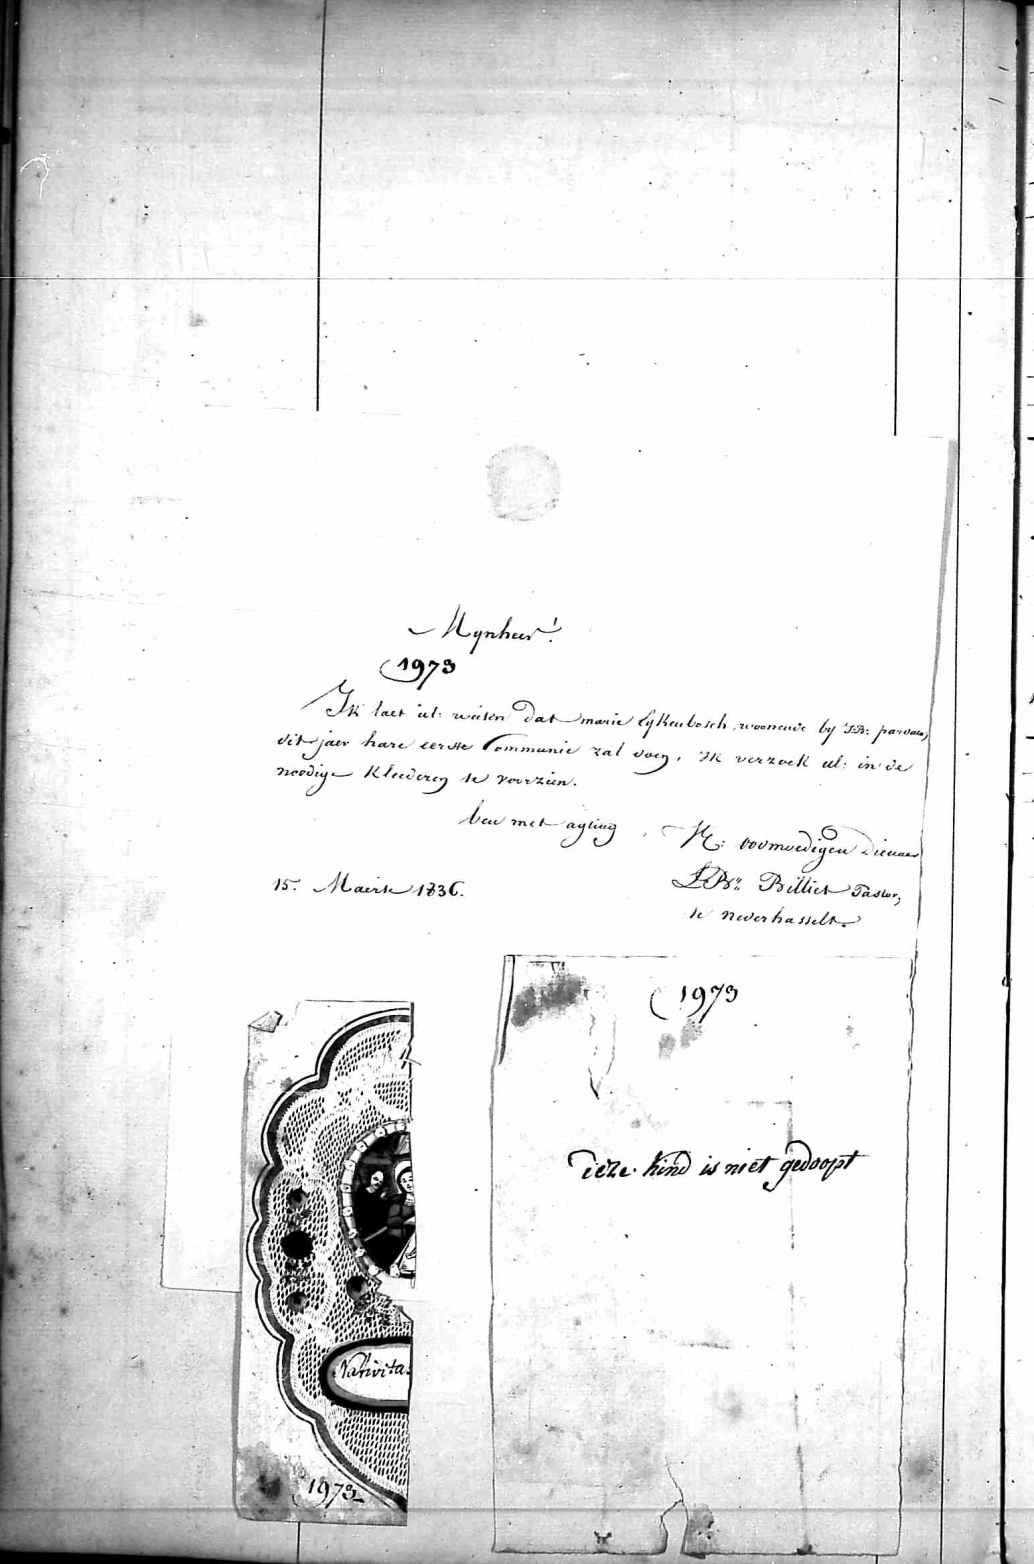 Mynheer!
1973
Ik laet ul: weiten dat marie Eykenbosch, woonende by J.B: parvais,
dit jaer hare eerste Communie zal doen, Ik verzoek ul: in de
noodige kleederen te voorzien.
ben met agting
N: ootmoedigen Dienaer
15. Maerte 1836.
Billiet Pastor,
te nederhasselt.
1973
deze kind is niet gedoopt
Nativita
1973